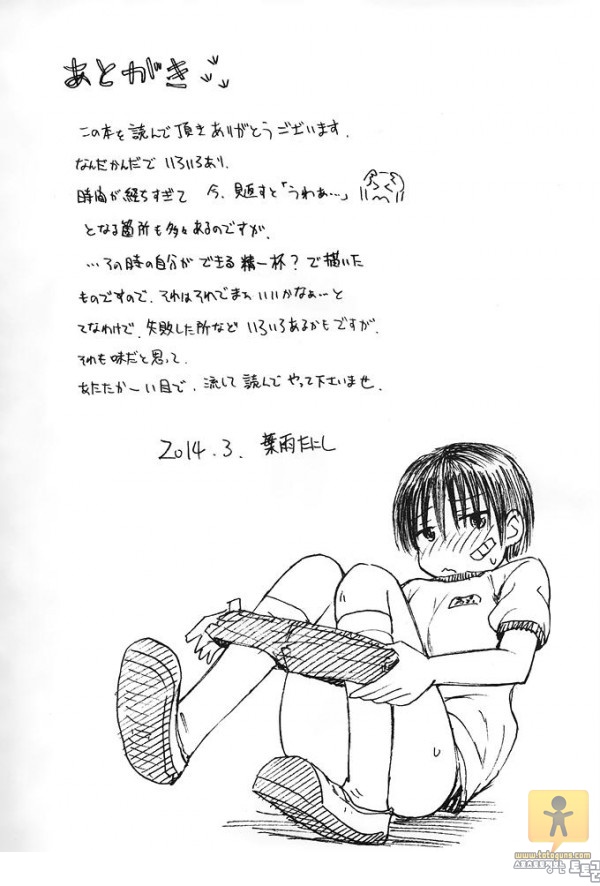 あとがき
この本を読んで頂きありがとうございます。
なんだかんだで いろいろあり、
時間が経ちすぎて 今、見直すと「うわぁ…」
となる箇所も多々あるのですが、
…その時の自分ができる精一杯?で描いた
ものですので、それはそれでまぁいいかなぁ…と
てなわけで、失敗した所など いろいろあるかもですが、
それも味だと思って、
あたたかーい目で、流して読んでやって下さいませ。
2014.3. 葉雨たにし
www.totoguns.com